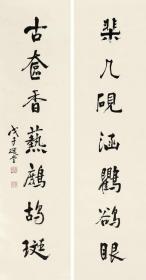 棐几砚涵鸜鹆眼
古奁香爇鹧鸪斑
戊子